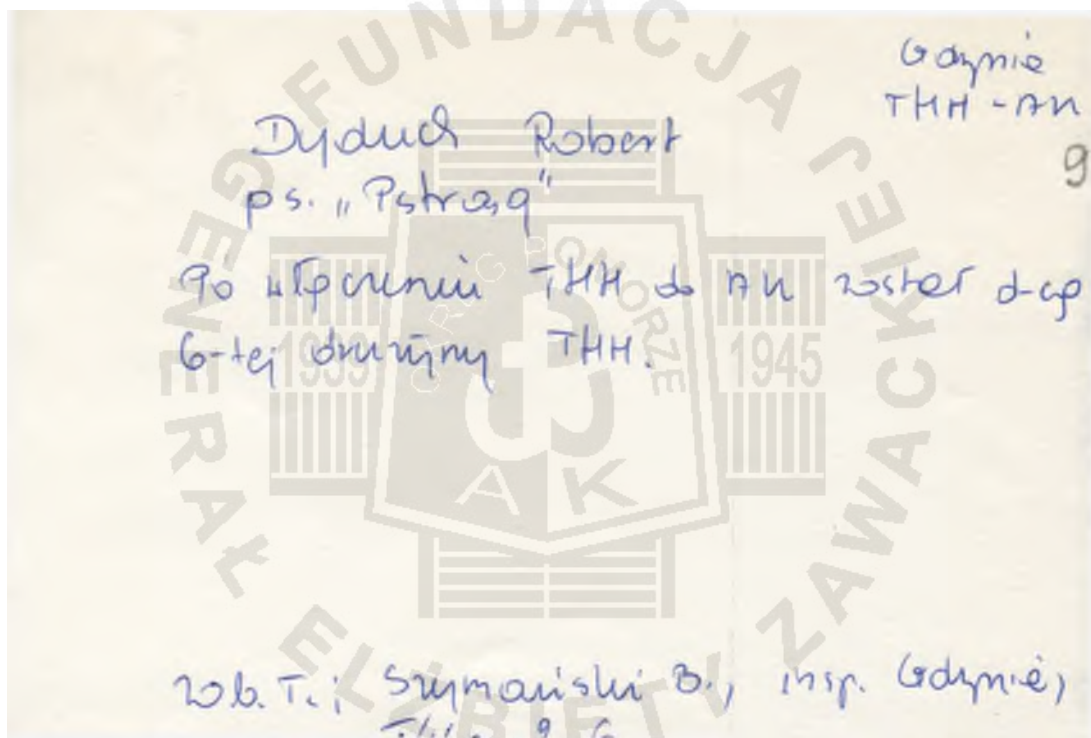 Gdynia
THH - AK
9
Dyduch Robert
ps. „Pstrąg"
Po włączeniu THH do AK został d-cą
6-tej drużyny THH.
zob. T.; Szymański B., insp. Gdynia,
FUNDACJA GENERAŁ ELŻBIETY ZAWACKIEJ
ARG POMORZE
1939 1945
AK